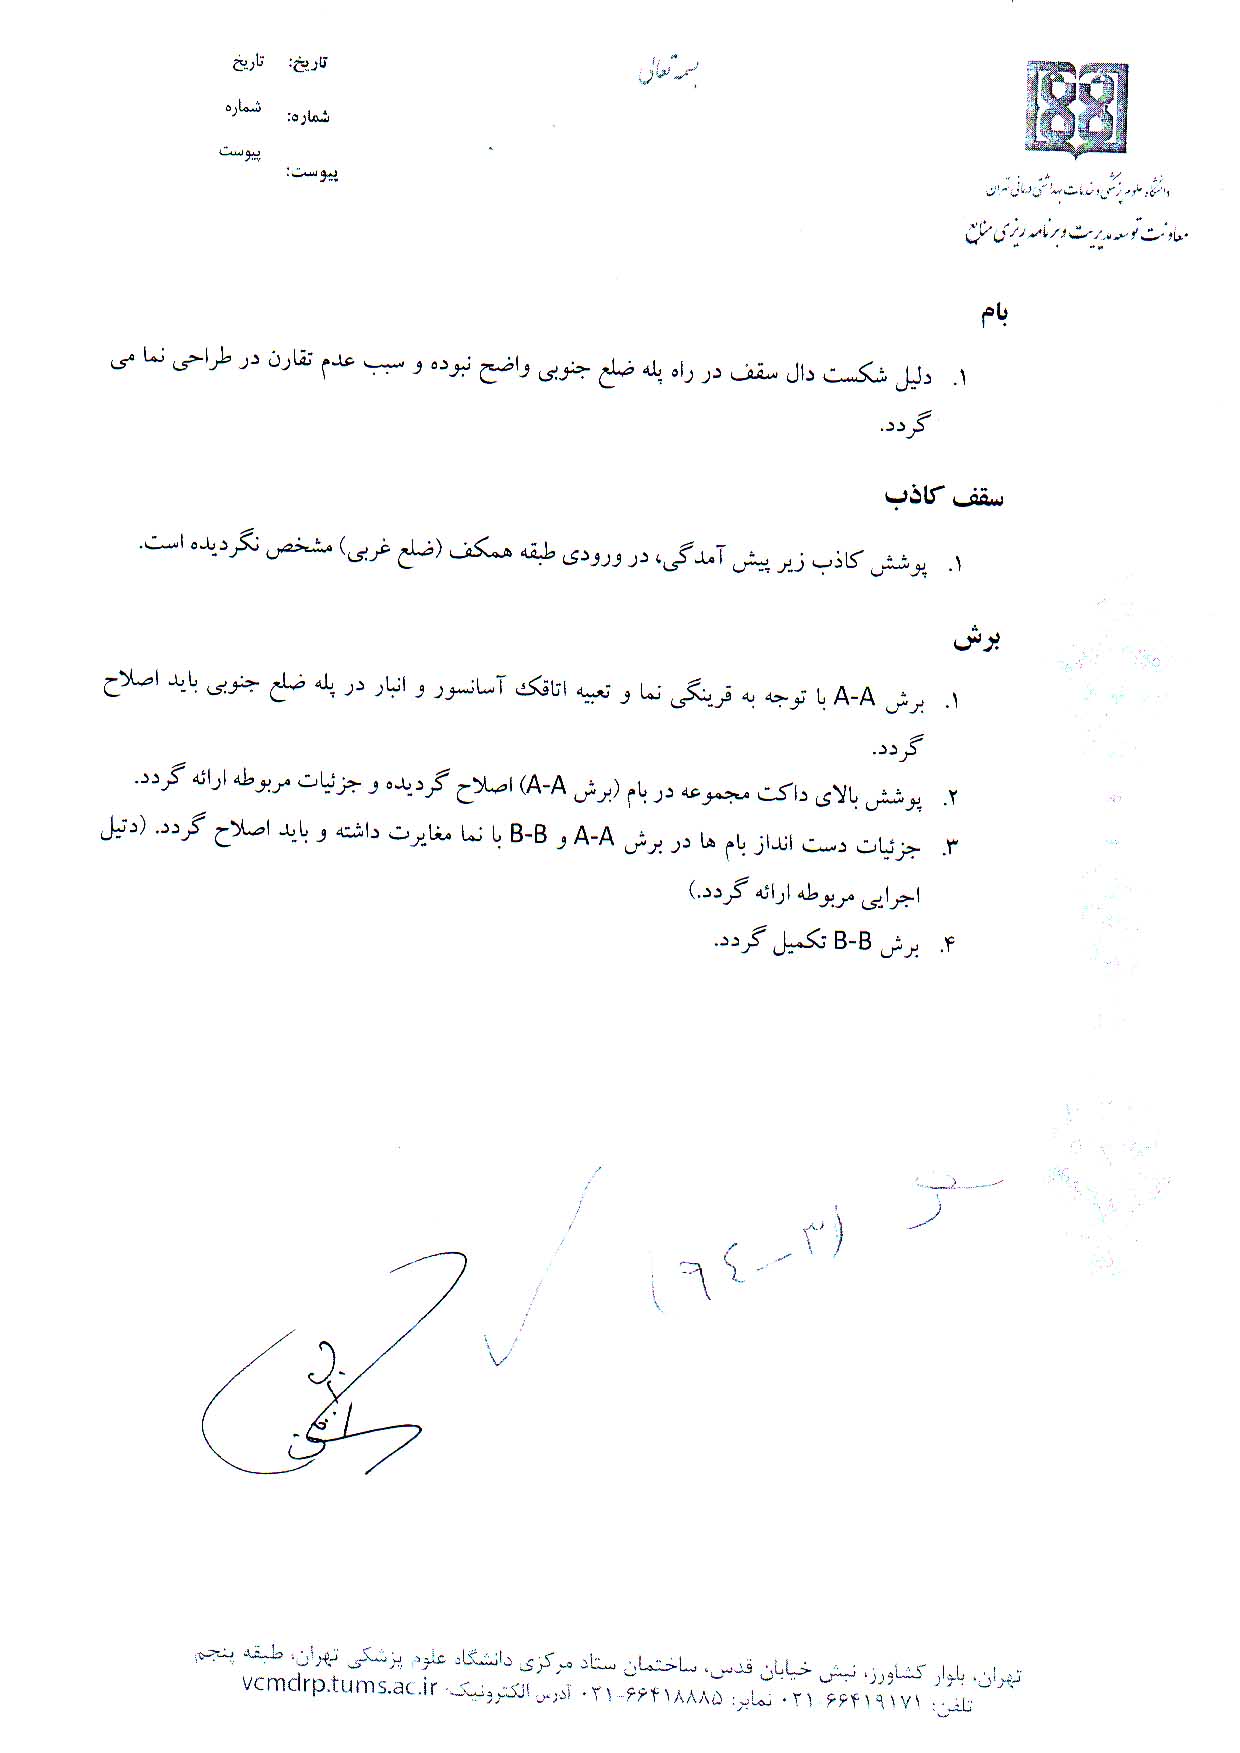 بسمه تعالی
تاریخ: تاریخ
شماره: شماره
پیوست: پیوست
دانشگاه علوم پزشکی و خدمات بهداشتی درمانی تهران
معاونت توسعه مدیریت و برنامه ریزی منابع
بام
۱. دلیل شکست دال سقف در راه پله ضلع جنوبی واضح نبوده و سبب عدم تقارن در طراحی نما می
گردد.
سقف کاذب
۱. پوشش کاذب زیر پیش آمدگی، در ورودی طبقه همکف (ضلع غربی) مشخص نگردیده است.
برش
۱. برش A-A با توجه به قرینگی نما و تعبیه اتاقک آسانسور و انبار در پله ضلع جنوبی باید اصلاح
گردد.
۲. پوشش بالای داکت مجموعه در بام (برش A-A) اصلاح گردیده و جزئیات مربوطه ارائه گردد.
۳. جزئیات دست انداز بام ها در برش A-A و B-B با نما مغایرت داشته و باید اصلاح گردد. (دتیل
اجرایی مربوطه ارائه گردد.)
۴. برش B-B تکمیل گردد.
تهران، بلوار کشاورز، نبش خیابان قدس، ساختمان ستاد مرکزی دانشگاه علوم پزشکی تهران، طبقه پنجم
تلفن: ۶۶۴۱۹۱۷۱-۰۲۱ نمابر: ۶۶۴۱۸۸۸۵-۰۲۱ آدرس الکترونیک: vcmdrp.tums.ac.ir